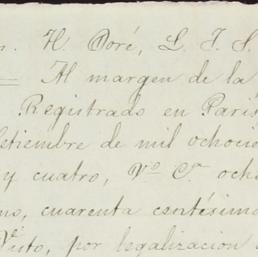 r. H. Doré, L. J. S.
Al margen de la
Registrado en Paris
Setiembre de mil ochocie
y cuatro, Vº Cª. och
ns, cuarenta centésimo
Visto, por legalizacion